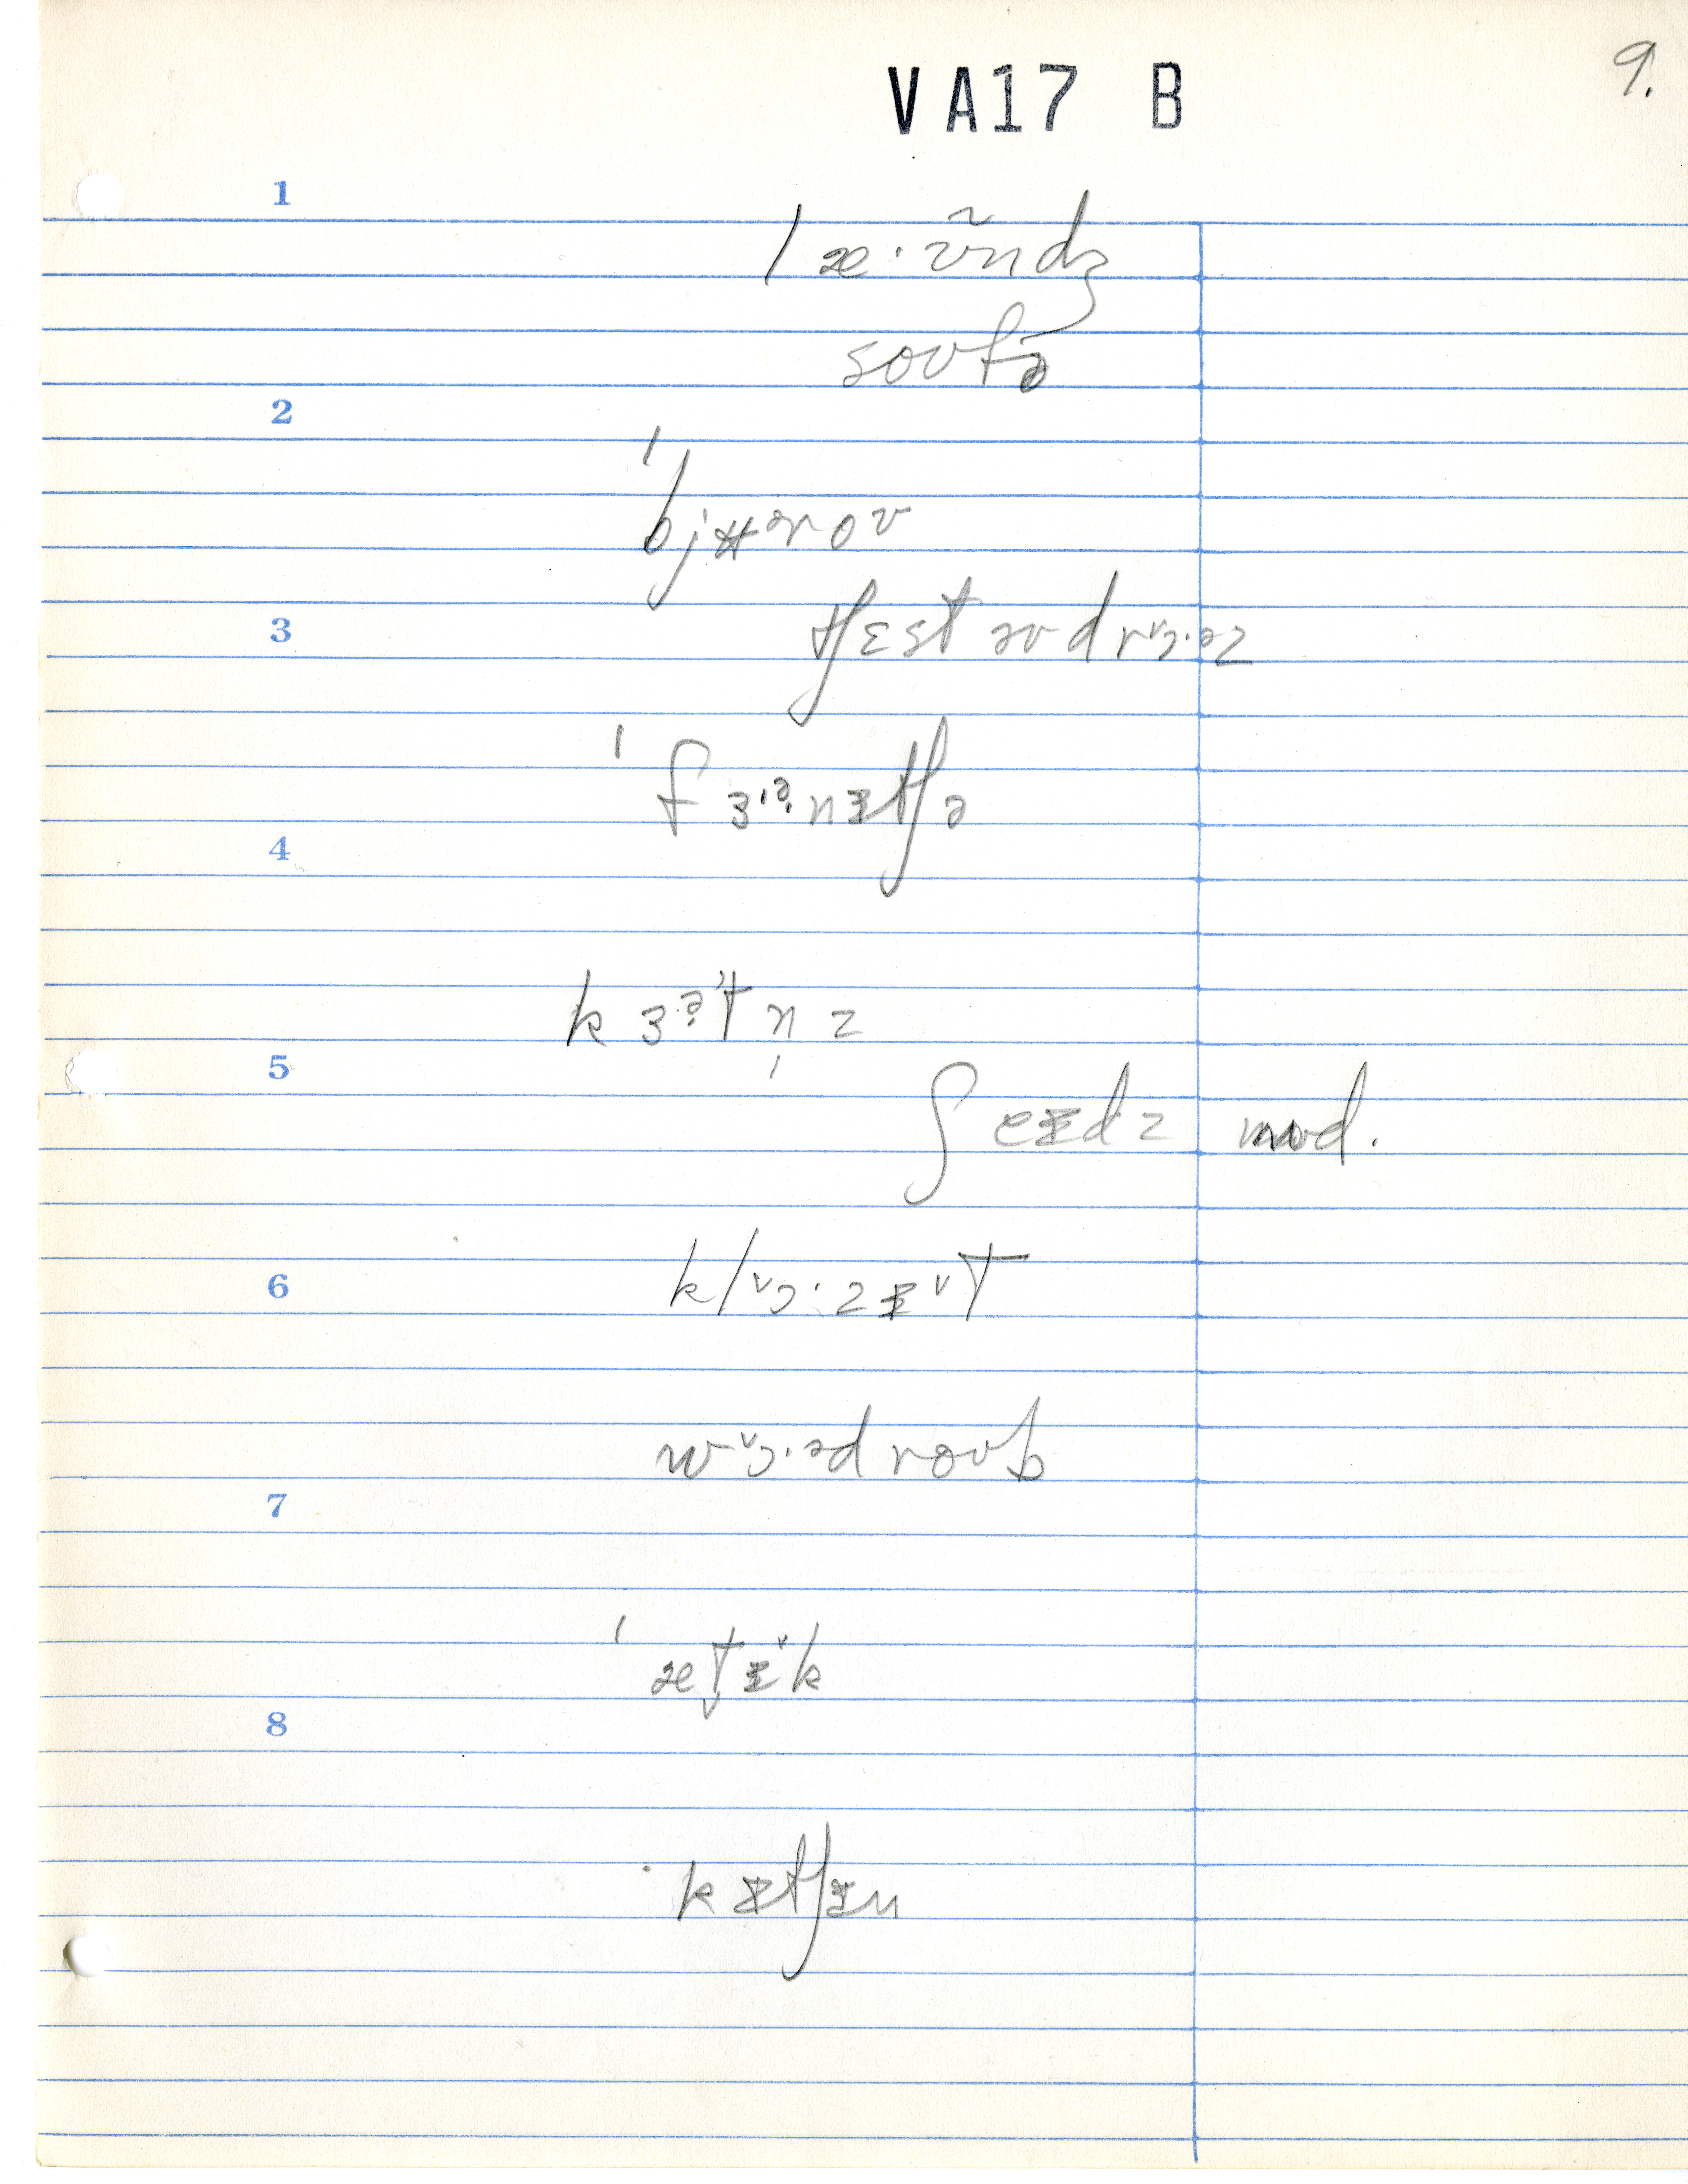 VA17 B
9.
1
læ·ʊ̃ndʒ
soʊfə
2
ˈbjʉᵊroʊ
3
tʃɛst əv drᵛɔ·əz
ˈfɜᵊ·nɪtʃə
4
kɜᵊ·tn̩z
5
ʃeɪdz mod.
6
klᵛɔ·zɪᵛt
wᵛɔ·ədroʊb
7
ˈæt̬ɪ̌k
8
kɪtʃɪn